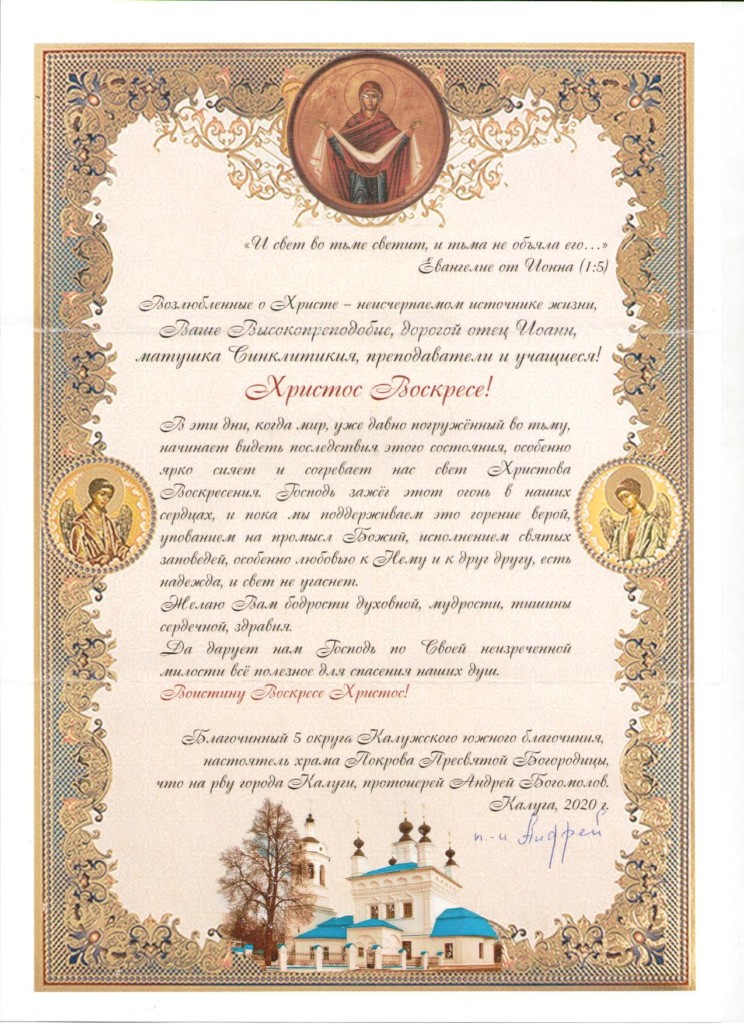 «И свет во тьме светит, и тьма не объяла его...»
Евангелие от Ионна (1:5)
Возлюбленные о Христе – неисчерпаемом источнике жизни,
Ваше Высокопреподобие, дорогой отец Иоанн,
матушка Синклитикия, преподаватели и учащиеся!
Христос Воскресе!
В эти дни, когда мир, уже давно погружённый во тьму,
начинает видеть последствия этого состояния, особенно
ярко сияет и согревает нас свет Христова
Воскресения. Господь зажёг этот огонь в наших
сердцах, и пока мы поддерживаем это горение верой,
упованием на промысл Божий, исполнением святых
заповедей, особенно любовью к Нему и к друг другу, есть
надежда, и свет не угаснет.
Желаю Вам бодрости духовной, мудрости, тишины
сердечной, здравия.
Да дарует нам Господь по Своей неизреченной
милости всё полезное для спасения наших душ.
Воистину Воскресе Христос!
Благочинный 5 округа Калужского южного благочиния,
настоятель храма Покрова Пресвятой Богородицы,
что на рву города Калуги, протоиерей Андрей Богомолов.
Калуга, 2020 г.
п.-и Андрей